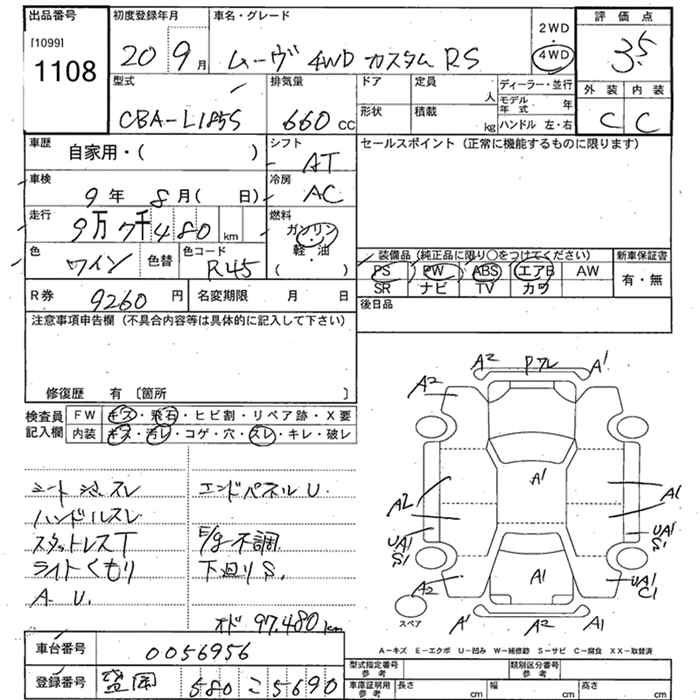 出品番号
[1099]
1108
初度登録年月
20 9月
車名・グレード
ムーヴ 4WD カスタム RS
2WD
・
4WD
評価点
3.5
外装 内装
C C
型式
CBA-L185S
排気量
660 cc
ドア
形状
定員
人
積載
kg
ディーラー・並行
モデル年式 年
ハンドル 左・右
車歴
自家用・( )
シフト
AT
セールスポイント (正常に機能するものに限ります)
車検
9年 8月( 日)
冷房
AC
走行
9万7千480 km
燃料
ガソリン
・
軽・油
( )
色
ワイン
色替
色コード
R45
装備品 (純正品に限り〇をつけてください)
新車保証書
PS PW ABS エアB AW
SR ナビ TV カワ
有・無
R券
9260 円
名変期限 月 日
後日品
注意事項申告欄 (不具合内容等は具体的に記入して下さい)
修復歴 有 〔箇所 〕
検査員記入欄
FW キズ・飛石・ヒビ割・リペア跡・X要
内装 キズ・汚レ・コゲ・穴・スレ・キレ・破レ
エンドパネル U.
ハンドルスレ
スタットレスT
E/g 不調
ライトくもり
下廻り S.
A. U.
オド 97.480 km
A2 Pフレ A1
A2 A1
A1
A2 A1
UA1 S1
UA1 S1
A2 A1 UA1 C1
A1 A2 A1
スペア
A-キズ E-エクボ U-凹み W-補修跡 S-サビ C-腐食 XX-取替済
車台番号
0056956
登録番号
盛岡 580 こ 5690
型式指定番号
参考
類別区分番号
参考
車庫証明用
参考
長さ cm 幅 cm 高さ cm